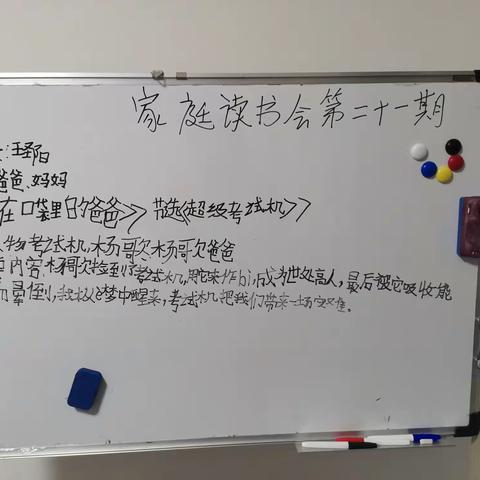 家庭读书会第二十一期
:王珺白
爸爸、妈妈
在口袋里的爸爸>>节选《超级考试机>>
物考试机,杨歌,杨歌爸爸
内容:杨歌捡到考试机,用它来作bi,成了世外高人,最后被它吸收能
而晕倒,从梦中醒来,考试机把我们带来一场灾难。